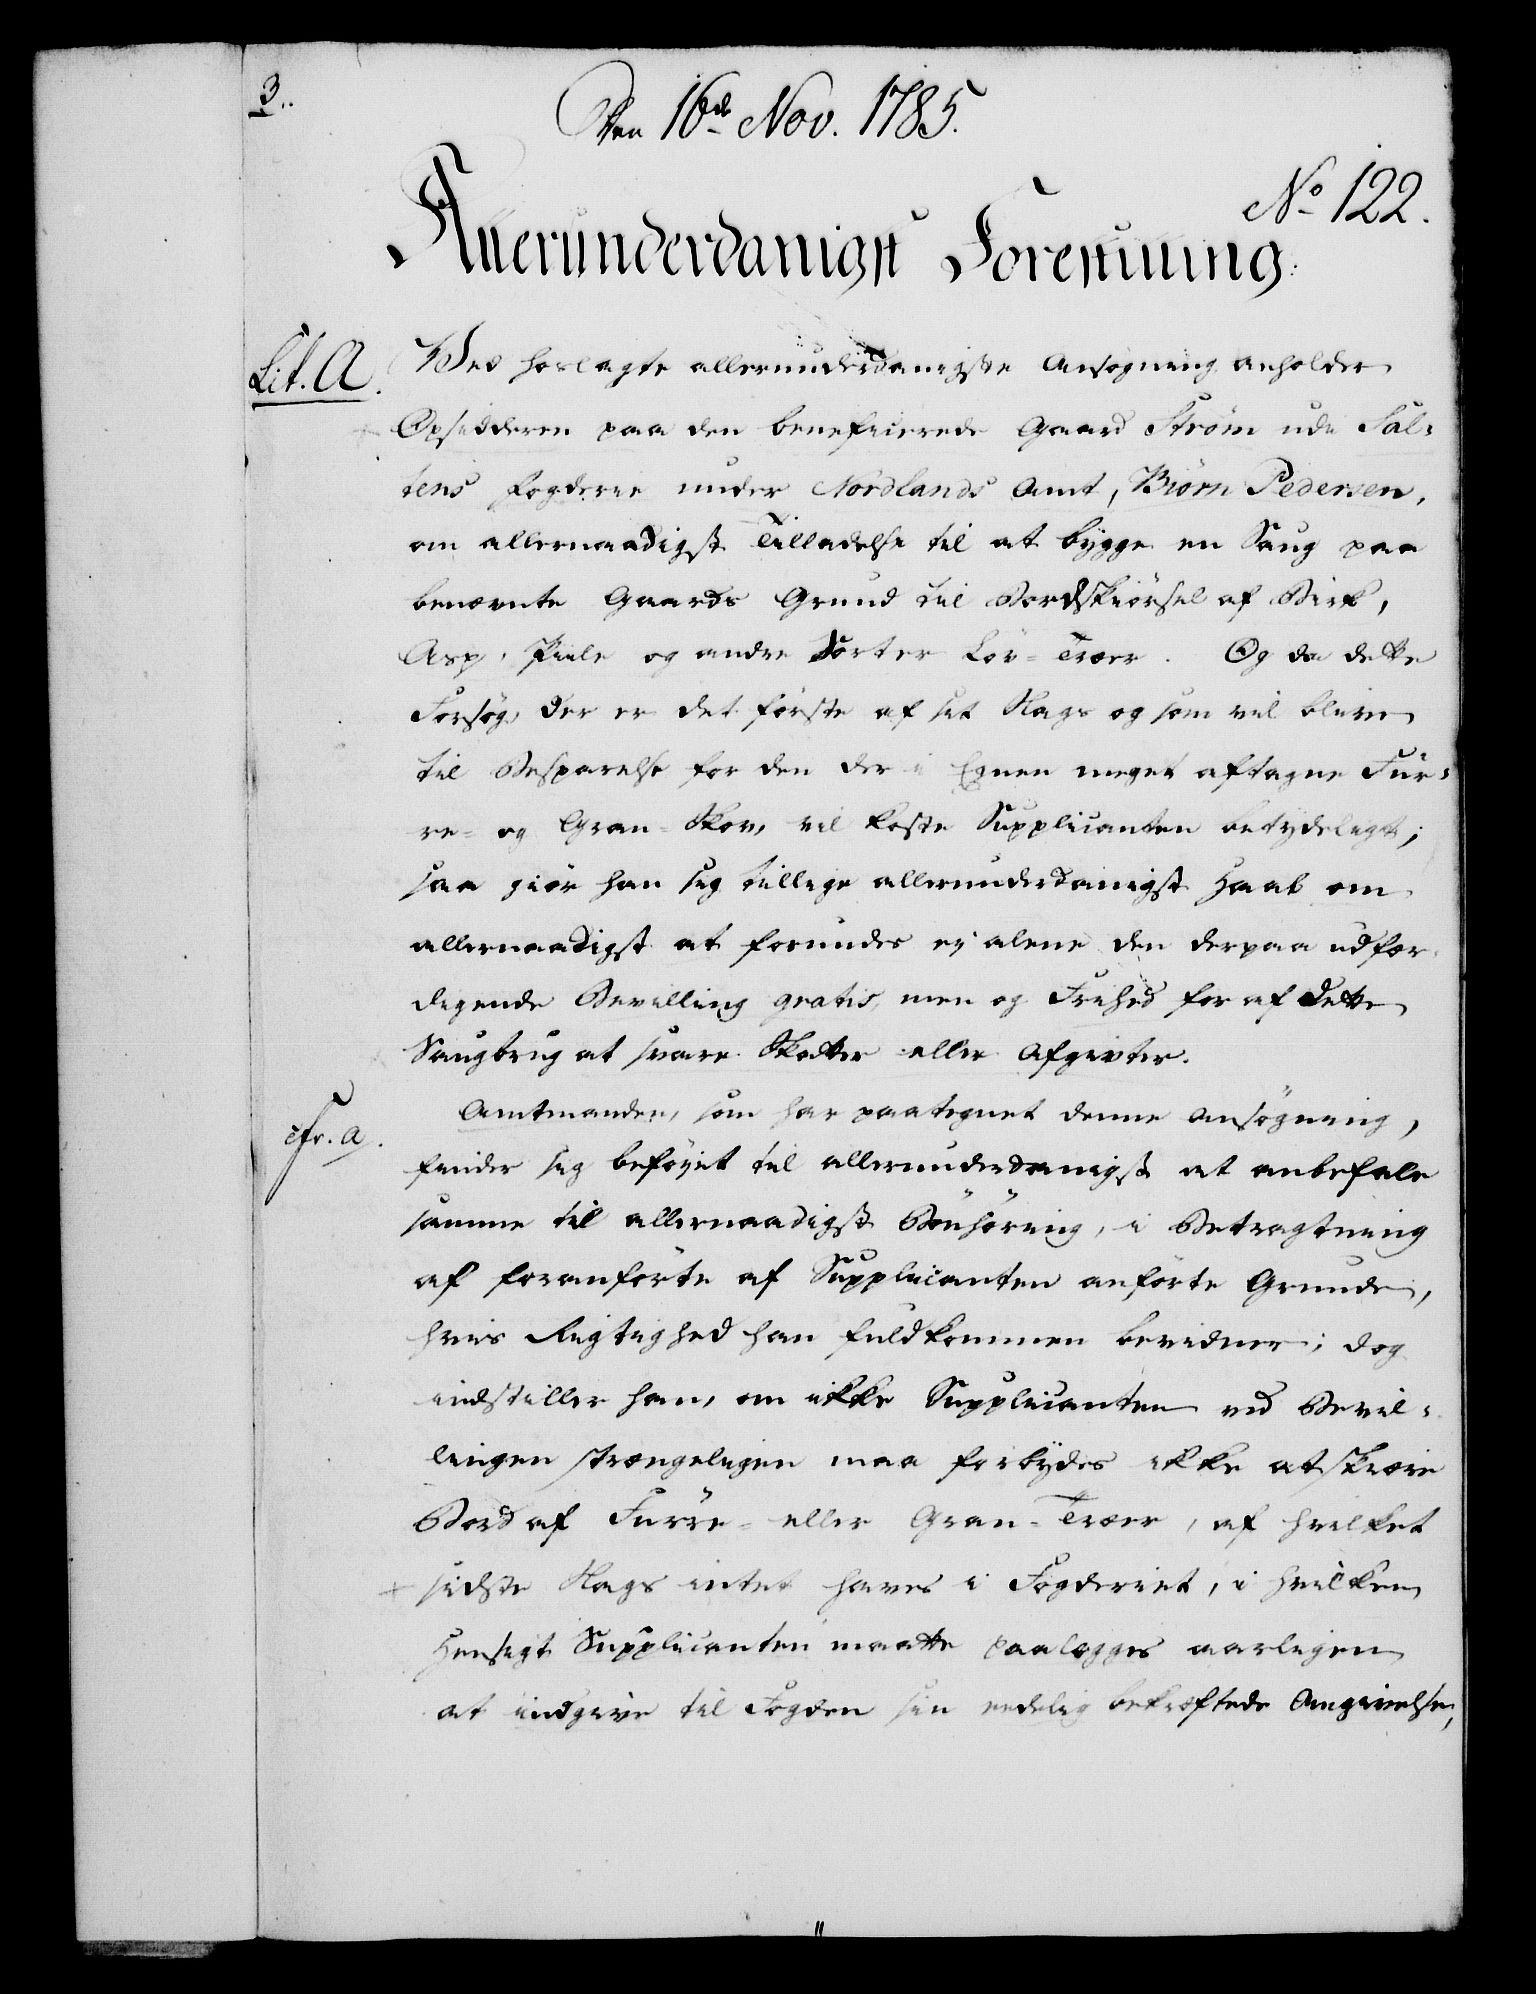 3..
Den 16de Nov. 1785.
No 122.
Allerunderdanigst Forestilling:
Lit. A.
Ved hoslagte allerunderdanigste Ansøgning anholder
Opsidderen paa den beneficerede Gaard Strøm udi Sal-
tens Fogderie under Nordlands Amt, Biørn Pedersen,
om allernaadigst Tilladelse til at bygge en Saug paa
benævnte Gaards Grund til Bordskiørsel af Birk,
Asp, Piile og andre Sorter Löv-Træer. Og da dette
Forsøg, der er det første af sit Slags og som vil blive
til Besparelse for den der i Egnen meget aftagne Fur-
re- og Gran-Skov, vil koste Supplicanten betydeligt;
saa giør han sig tillige allerunderdanigst Haab om
allernaadigst at forundes ej alene den derpaa udfær-
digende Bevilling gratis, men og Frihed for af dette
Saugbrug at svare Skatter eller Afgivter.
cfr. a.
Amtmanden, som har paategnet denne Ansøgning,
finder sig beføyet til allerunderdanigst at anbefale
samme til allernaadigst Bønhøring, i Betragtning
af foranførte af Supplicanten anførte Grunde,
hvis Rigtighed han fuldkommen bevidner; dog
indstiller han, om ikke Supplicanten ved Bevil-
lingen strængeligen maa forbydes ikke at skiære
Bord af Furre- eller Gran-Træer, af hvilket
sidste Slags intet haves i Fogderiet, i hvilken
Hensigt Supplicanten maatte paalægges aarligen
at indgive til Fogden sin eedelig bekræftede Angivelse,